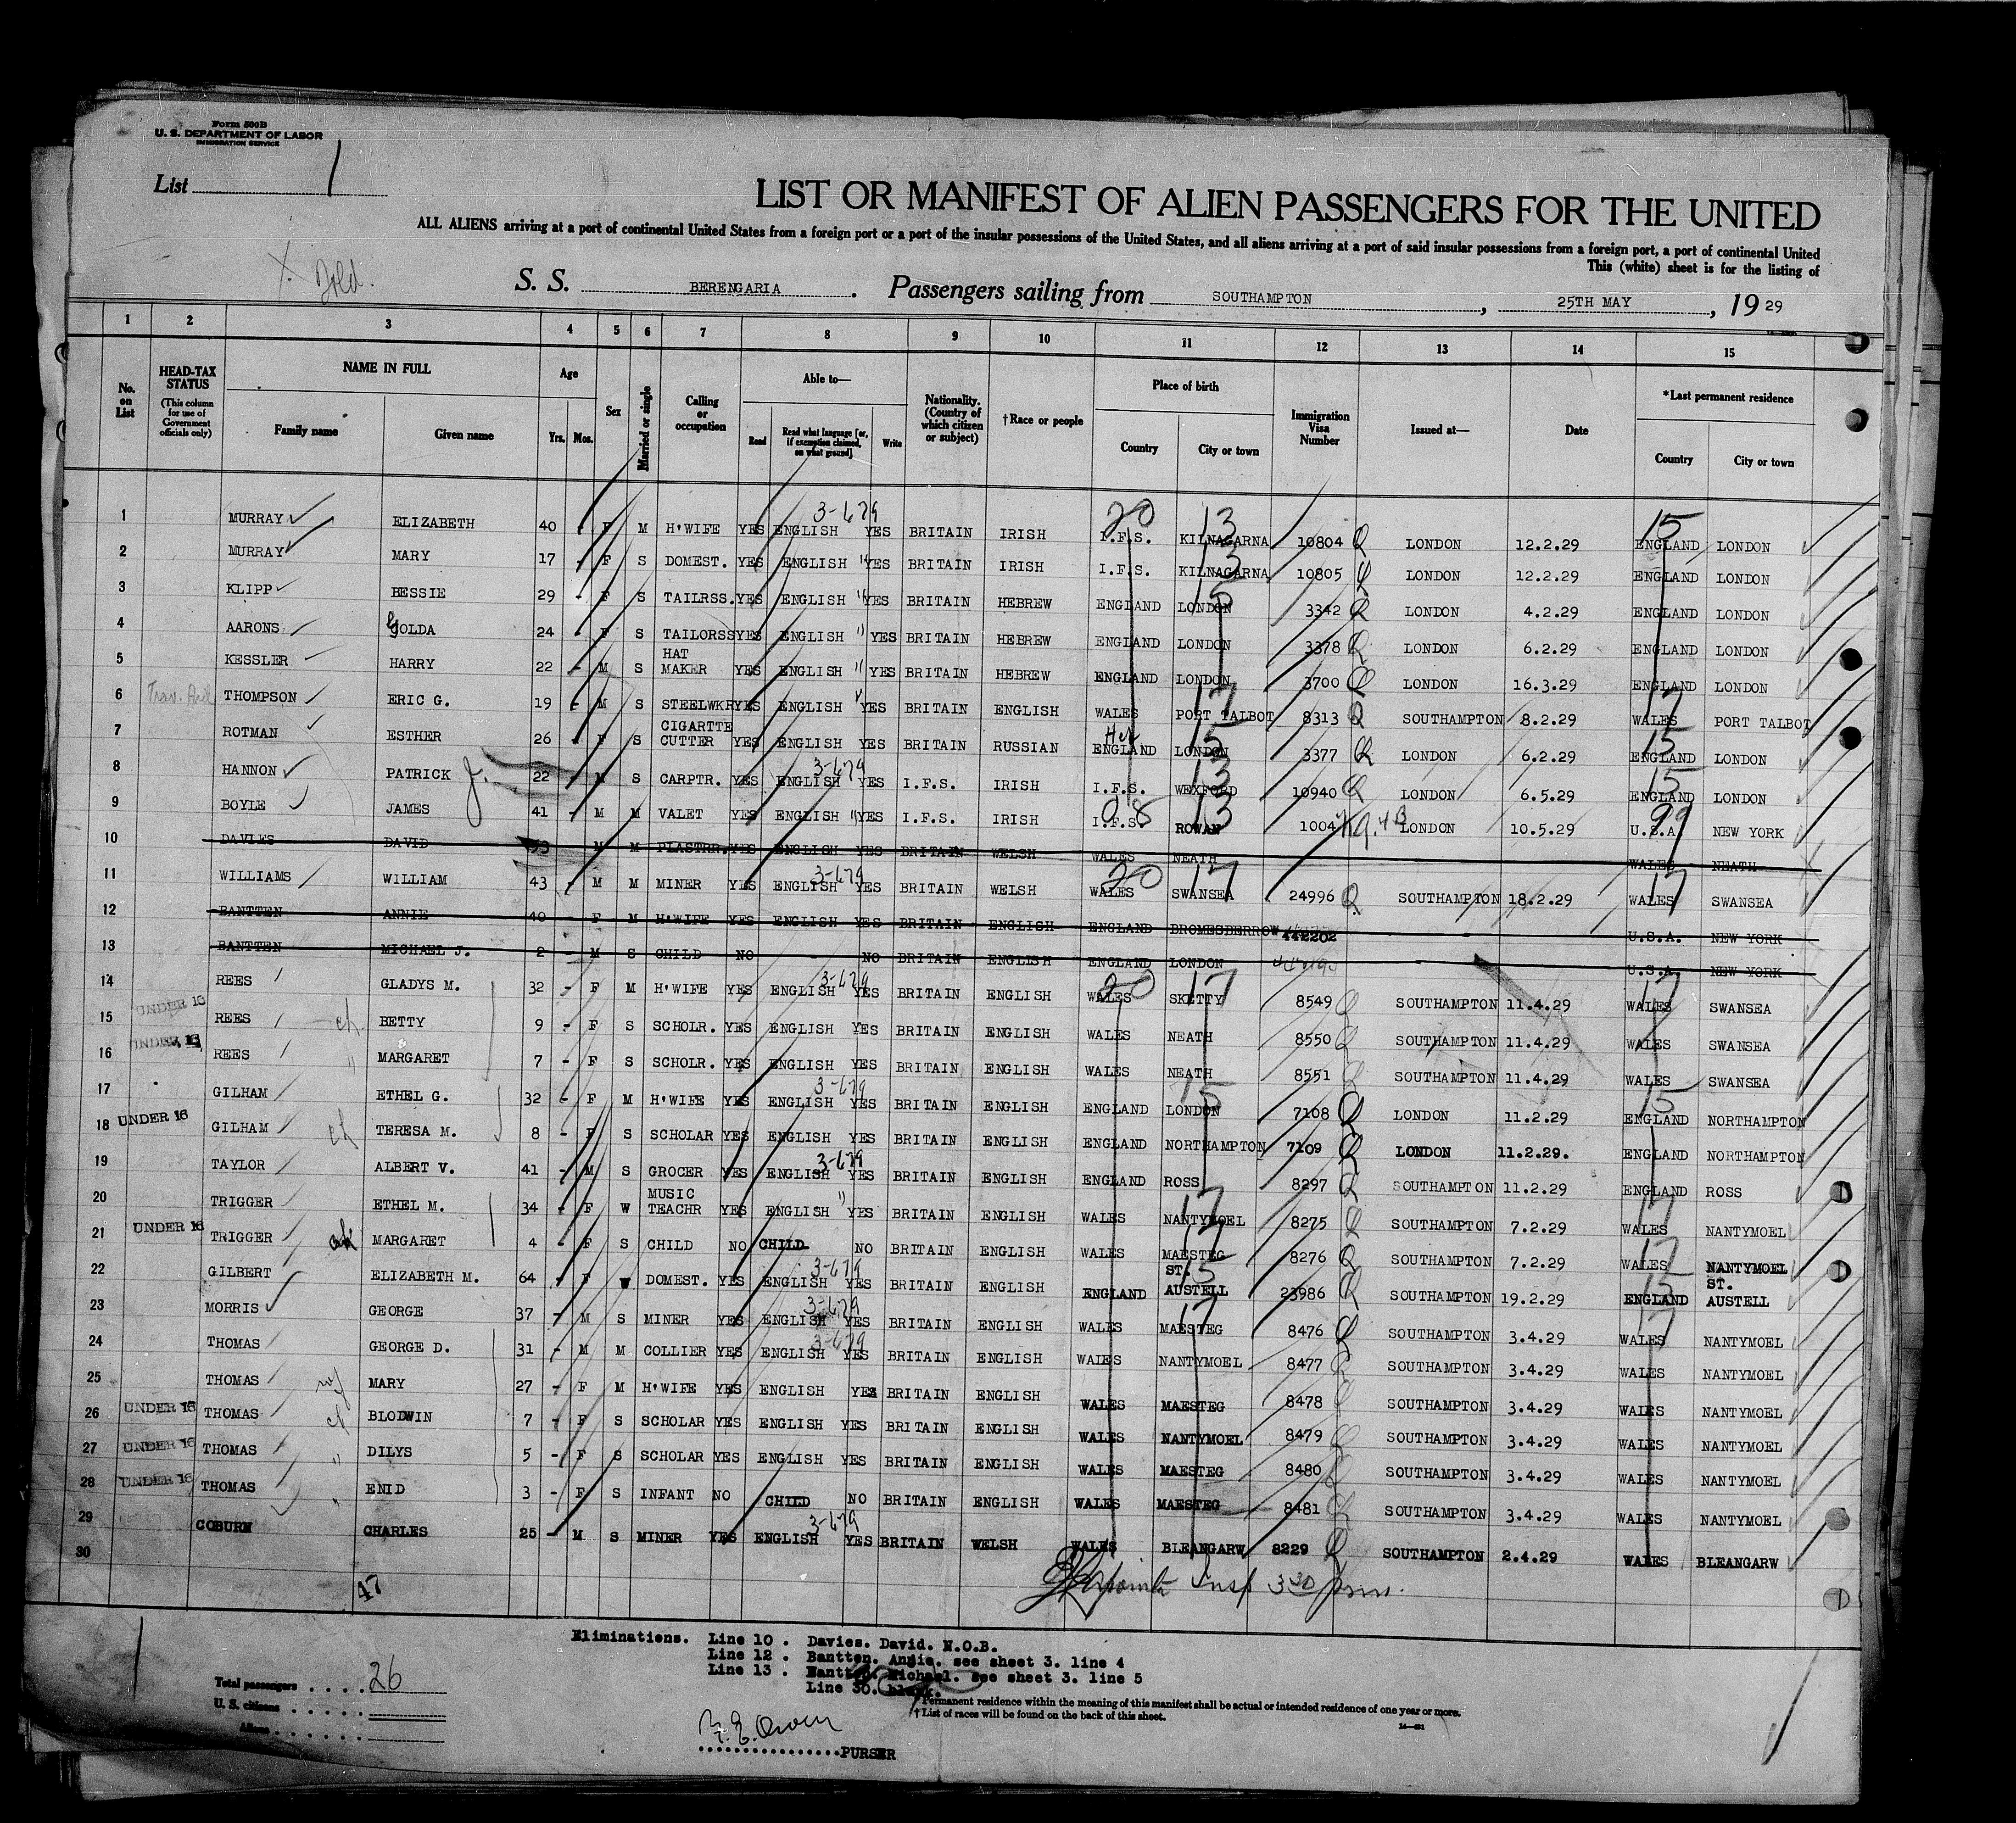 Form 500B
U. S. DEPARTMENT OF LABOR
IMMIGRATION SERVICE
List 1
LIST OR MANIFEST OF ALIEN PASSENGERS FOR THE UNITED
ALL ALIENS arriving at a port of continental United States from a foreign port or a port of the insular possessions of the United States, and all aliens arriving at a port of said insular possessions from a foreign port, a port of continental United
This (white) sheet is for the listing of
S. S. BERENGARIA. Passengers sailing from SOUTHAMPTON, 25TH MAY, 1929
1 2 3 4 5 6 7 8 9 10 11 12 13 14 15
No. on List HEAD-TAX STATUS (This column for use of Government officials only) NAME IN FULL Family name Given name Age Yrs. Mos. Sex Married or single Calling or occupation Able to— Read Read what language [or, if exemption claimed, on what ground] Write Nationality. (Country of which citizen or subject) †Race or people Place of birth Country City or town Immigration Visa Number Issued at— Date *Last permanent residence Country City or town
1 MURRAY ELIZABETH 40 - F M H'WIFE YES ENGLISH YES BRITAIN IRISH I.F.S. KILNAGARNA 10804 LONDON 12.2.29 ENGLAND LONDON
2 MURRAY MARY 17 - F S DOMEST. YES ENGLISH YES BRITAIN IRISH I.F.S. KILNAGARNA 10805 LONDON 12.2.29 ENGLAND LONDON
3 KLIPP BESSIE 29 - F S TAILRSS. YES ENGLISH YES BRITAIN HEBREW ENGLAND LONDON 3342 LONDON 4.2.29 ENGLAND LONDON
4 AARONS GOLDA 24 - F S TAILORSS YES ENGLISH YES BRITAIN HEBREW ENGLAND LONDON 3378 LONDON 6.2.29 ENGLAND LONDON
5 KESSLER HARRY 22 - M S HAT MAKER YES ENGLISH YES BRITAIN HEBREW ENGLAND LONDON 3700 LONDON 16.3.29 ENGLAND LONDON
6 THOMPSON ERIC G. 19 - M S STEELWKR YES ENGLISH YES BRITAIN ENGLISH WALES PORT TALBOT 8313 SOUTHAMPTON 8.2.29 WALES PORT TALBOT
7 ROTMAN ESTHER 26 - F S CIGARTTE CUTTER YES ENGLISH YES BRITAIN RUSSIAN ENGLAND LONDON 3377 LONDON 6.2.29 ENGLAND LONDON
8 HANNON PATRICK J. 22 - M S CARPTR. YES ENGLISH YES I.F.S. IRISH I.F.S. WEXFORD 10940 LONDON 6.5.29 ENGLAND LONDON
9 BOYLE JAMES 41 - M M VALET YES ENGLISH YES I.F.S. IRISH I.F.S. ROWAN 1004 LONDON 10.5.29 U.S.A. NEW YORK
10 DAVIES DAVID M M PLASTRR. YES ENGLISH YES BRITAIN WELSH WALES NEATH WALES NEATH
11 WILLIAMS WILLIAM 43 - M M MINER YES ENGLISH YES BRITAIN WELSH WALES SWANSEA 24996 SOUTHAMPTON 18.2.29 WALES SWANSEA
12 BANTTEN ANNIE 40 - F M H'WIFE YES ENGLISH YES BRITAIN ENGLISH ENGLAND BROMESBERROW 442202 U.S.A. NEW YORK
13 BANTTEN MICHAEL J. 2 - M S CHILD NO - NO BRITAIN ENGLISH ENGLAND LONDON U.S.A. NEW YORK
14 REES GLADYS M. 32 - F M H'WIFE YES ENGLISH YES BRITAIN ENGLISH WALES SKETTY 8549 SOUTHAMPTON 11.4.29 WALES SWANSEA
15 UNDER 16 REES BETTY 9 - F S SCHOLR. YES ENGLISH YES BRITAIN ENGLISH WALES NEATH 8550 SOUTHAMPTON 11.4.29 WALES SWANSEA
16 UNDER 16 REES MARGARET 7 - F S SCHOLR. YES ENGLISH YES BRITAIN ENGLISH WALES NEATH 8551 SOUTHAMPTON 11.4.29 WALES SWANSEA
17 GILHAM ETHEL G. 32 - F M H'WIFE YES ENGLISH YES BRITAIN ENGLISH ENGLAND LONDON 7108 LONDON 11.2.29 ENGLAND NORTHAMPTON
18 UNDER 16 GILHAM TERESA M. 8 - F S SCHOLAR YES ENGLISH YES BRITAIN ENGLISH ENGLAND NORTHAMPTON 7109 LONDON 11.2.29. ENGLAND NORTHAMPTON
19 TAYLOR ALBERT V. 41 - M S GROCER YES ENGLISH YES BRITAIN ENGLISH ENGLAND ROSS 8297 SOUTHAMPTON 11.2.29 ENGLAND ROSS
20 TRIGGER ETHEL M. 34 - F W MUSIC TEACHR YES ENGLISH YES BRITAIN ENGLISH WALES NANTYMOEL 8275 SOUTHAMPTON 7.2.29 WALES NANTYMOEL
21 UNDER 16 TRIGGER MARGARET 4 - F S CHILD NO CHILD NO BRITAIN ENGLISH WALES MAESTEG 8276 SOUTHAMPTON 7.2.29 WALES NANTYMOEL
22 GILBERT ELIZABETH M. 64 - F W DOMEST. YES ENGLISH YES BRITAIN ENGLISH ENGLAND ST. AUSTELL 23986 SOUTHAMPTON 19.2.29 ENGLAND ST. AUSTELL
23 MORRIS GEORGE 37 - M S MINER YES ENGLISH YES BRITAIN ENGLISH WALES MAESTEG 8476 SOUTHAMPTON 3.4.29 WALES NANTYMOEL
24 THOMAS GEORGE D. 31 - M M COLLIER YES ENGLISH YES BRITAIN ENGLISH WALES NANTYMOEL 8477 SOUTHAMPTON 3.4.29 WALES NANTYMOEL
25 THOMAS MARY 27 - F M H'WIFE YES ENGLISH YES BRITAIN ENGLISH WALES MAESTEG 8478 SOUTHAMPTON 3.4.29 WALES NANTYMOEL
26 UNDER 16 THOMAS BLODWIN 7 - F S SCHOLAR YES ENGLISH YES BRITAIN ENGLISH WALES NANTYMOEL 8479 SOUTHAMPTON 3.4.29 WALES NANTYMOEL
27 UNDER 16 THOMAS DILYS 5 - F S SCHOLAR YES ENGLISH YES BRITAIN ENGLISH WALES MAESTEG 8480 SOUTHAMPTON 3.4.29 WALES NANTYMOEL
28 UNDER 16 THOMAS ENID 3 - F S INFANT NO CHILD NO BRITAIN ENGLISH WALES MAESTEG 8481 SOUTHAMPTON 3.4.29 WALES NANTYMOEL
29 COBURN CHARLES 25 - M S MINER YES ENGLISH YES BRITAIN WELSH WALES BLEANGARW 8229 SOUTHAMPTON 2.4.29 WALES BLEANGARW
30
47
Eliminations. Line 10. Davies. David. N.O.B.
Line 12. Bantten. Annie. see sheet 3. line 4
Line 13. Bantten. Michael. see sheet 3. line 5
Line 30. blank.
Total passengers 26
U. S. citizens
Aliens
*Permanent residence within the meaning of this manifest shall be actual or intended residence of one year or more.
†List of races will be found on the back of this sheet.
PURSER